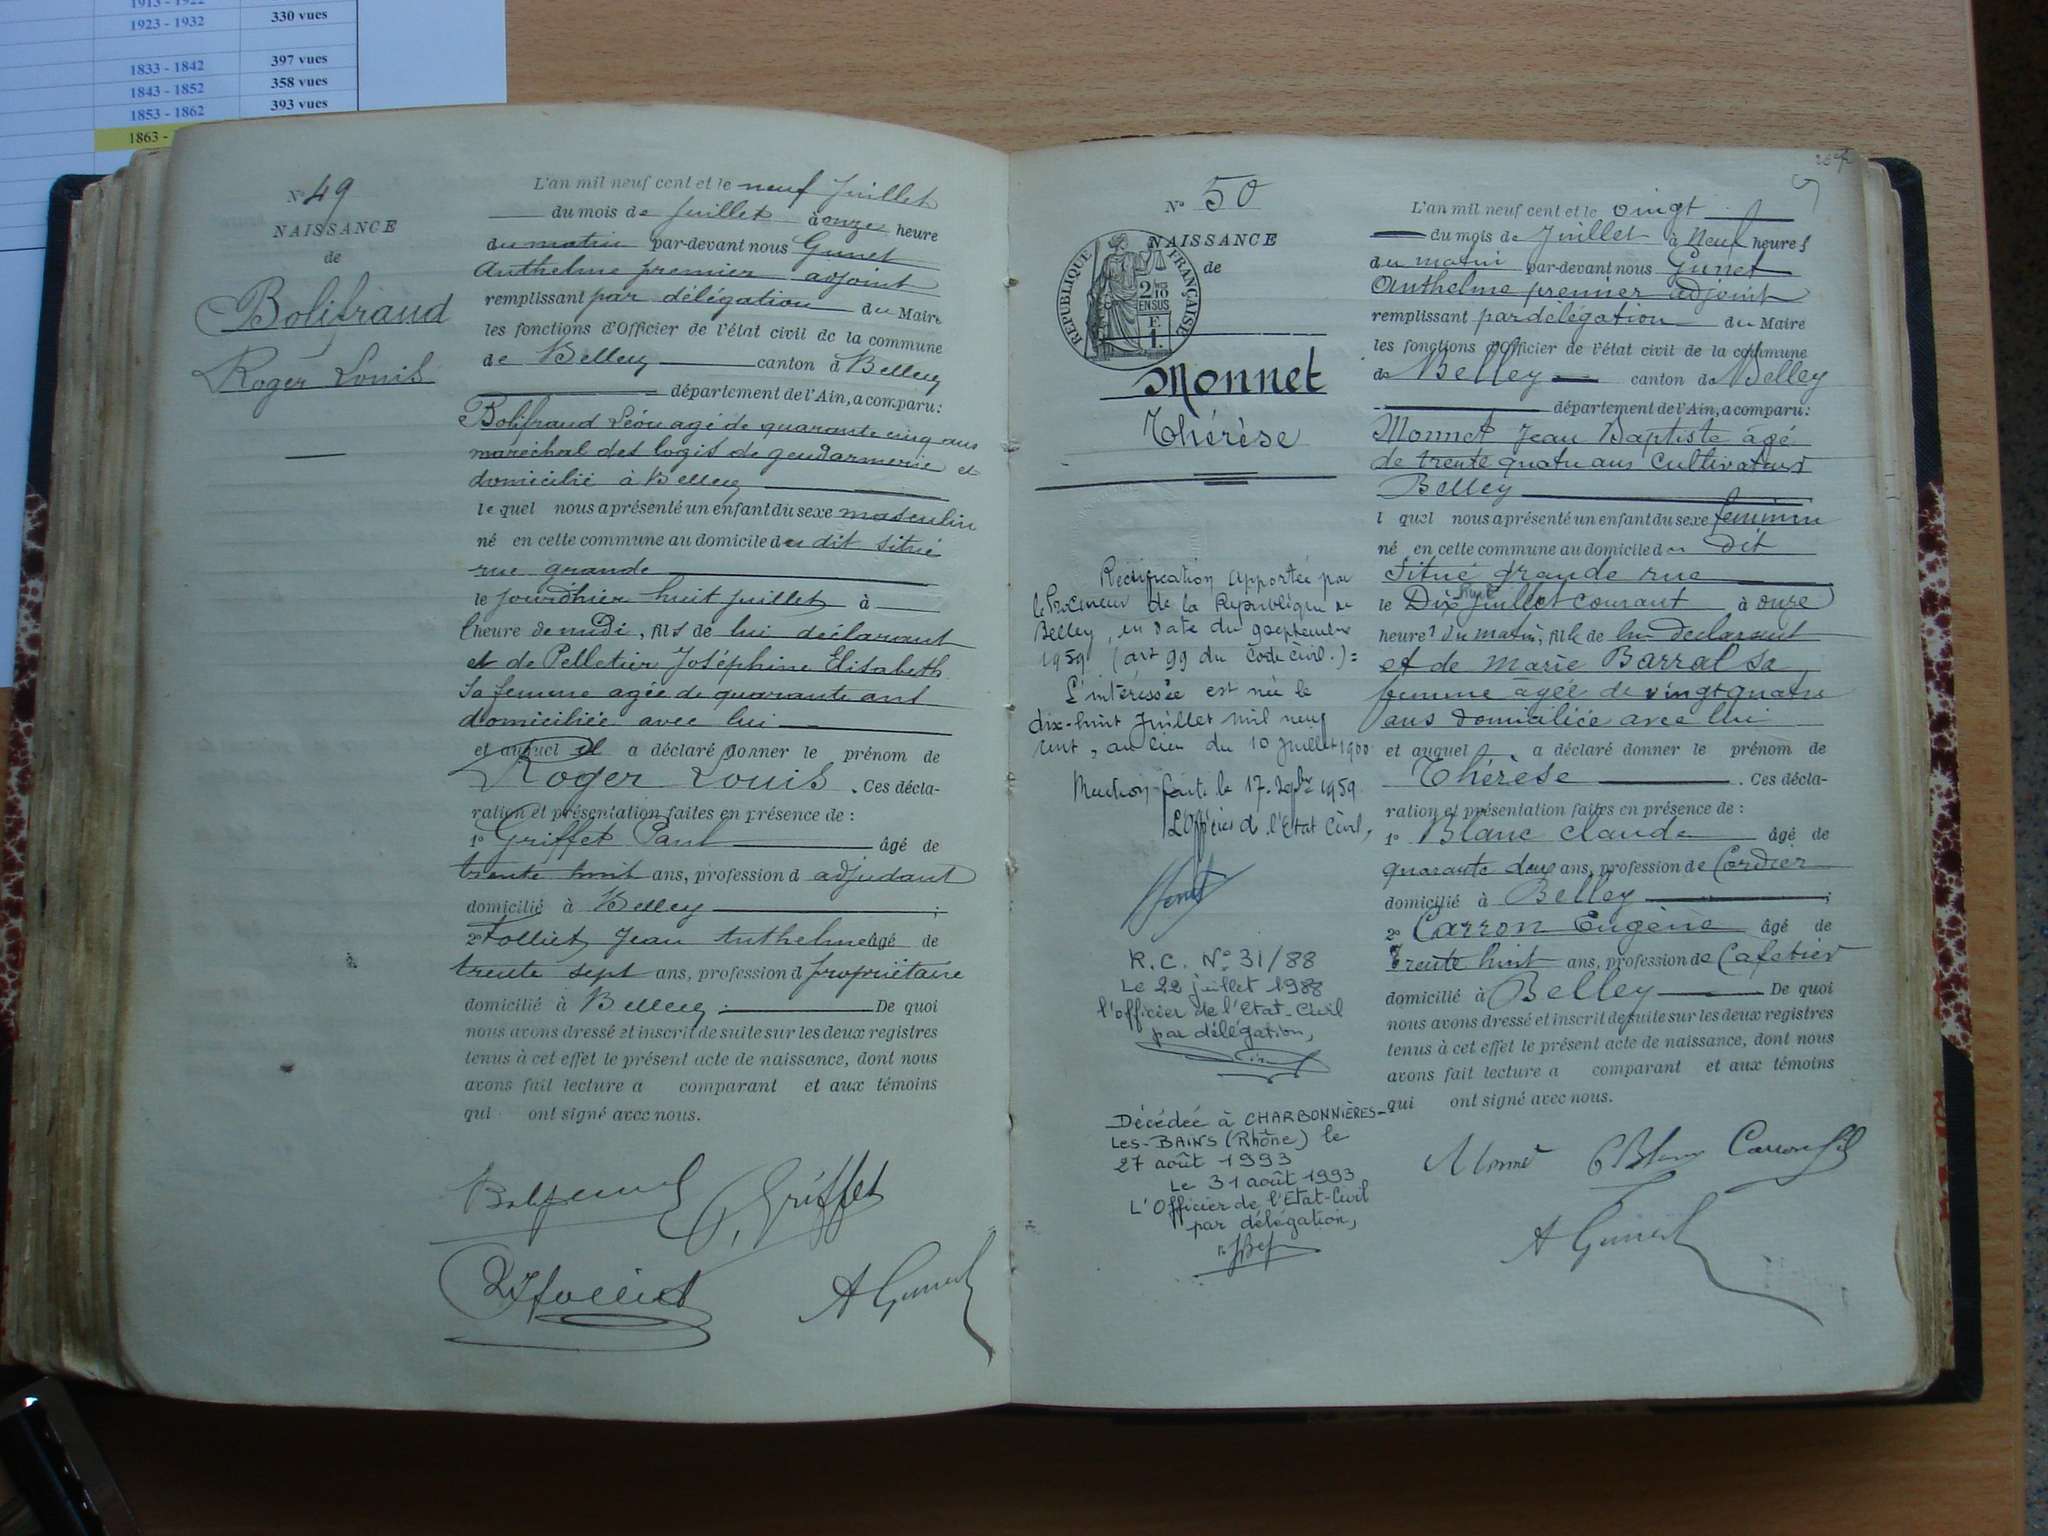 1913 - 1922
1923 - 1932 330 vues
1833 - 1842 397 vues
1843 - 1852 358 vues
1853 - 1862 393 vues
1863 -
N° 49
NAISSANCE
de
Bolifraud
Roger Louis
L'an mil neuf cent et le neuf Juillet
du mois de Juillet à onze heure
du matin par-devant nous Gunet
Anthelme premier adjoint
remplissant par délégation du Maire
les fonctions d'Officier de l'état civil de la commune
de Belley canton d Belley
département de l'Ain, a comparu:
Bolifraud Léon agé de quarante cinq ans
maréchal des logis de gendarmerie et
domicilié à Belley
le quel nous a présenté un enfant du sexe masculin
né en cette commune au domicile du dit situé
rue grande
le jourd'hier huit juillet à
l'heure de midi, fils de lui déclarant
et de Pelletier Joséphine Elisabeth
sa femme agée de quarante ans
domiciliée avec lui
et auquel il a déclaré donner le prénom de
Roger Louis. Ces décla-
ration et présentation faites en présence de :
1° Griffet Paul âgé de
trente huit ans, profession d adjudant
domicilié à Belley ;
2° Folliet Jean Anthelme âgé de
trente sept ans, profession d propriétaire
domicilié à Belley De quoi
nous avons dressé et inscrit de suite sur les deux registres
tenus à cet effet le présent acte de naissance, dont nous
avons fait lecture a comparant et aux témoins
qui ont signé avec nous.
Griffet
A Gunet
N° 50
NAISSANCE
de
RÉPUBLIQUE FRANÇAISE
2/10
EN SUS
F.
1.
Monnet
Thérèse
Rectification apportée par
le Procureur de la République de
Belley, en date du 9 septembre
1959 (art 99 du Code Civil.) =
L'intéressée est née le
dix-huit Juillet mil neuf
cent, au lieu du 10 juillet 1900
Mention faite le 17 Sepbre 1959
L'Officier de l'Etat Civil,
R.C. N° 31/88
Le 22 juillet 1988
l'officier de l'Etat-Civil
par délégation,
Décédée à CHARBONNIÈRES-
Les-BAINS (Rhône) le
27 août 1993
Le 31 août 1993
L'Officier de l'Etat-Civil
par délégation,
L'an mil neuf cent et le vingt
du mois de Juillet à Neuf heures
du matin par-devant nous Gunet
Anthelme premier adjoint
remplissant par délégation du Maire
les fonctions d'Officier de l'état civil de la commune
de Belley canton de Belley
département de l'Ain, a comparu:
Monnet Jean Baptiste âgé
de trente quatre ans Cultivateur
Belley
l quel nous a présenté un enfant du sexe féminin
né en cette commune au domicile du dit
situé grande rue
le Dix huit Juillet courant à onze
heure s du matin, fille de lui déclarant
et de Marie Barral sa
femme âgée de vingt quatre
ans domiciliée avec lui
et auquel a déclaré donner le prénom de
Thérèse. Ces décla-
ration et présentation faites en présence de :
1° Blanc Claude âgé de
quarante deux ans, profession de Cordier
domicilié à Belley ;
2° Carron Eugène âgé de
Trente huit ans, profession de Cafetier
domicilié à Belley De quoi
nous avons dressé et inscrit de suite sur les deux registres
tenus à cet effet le présent acte de naissance, dont nous
avons fait lecture a comparant et aux témoins
qui ont signé avec nous.
Monnet Blanc Carron
A Gunet